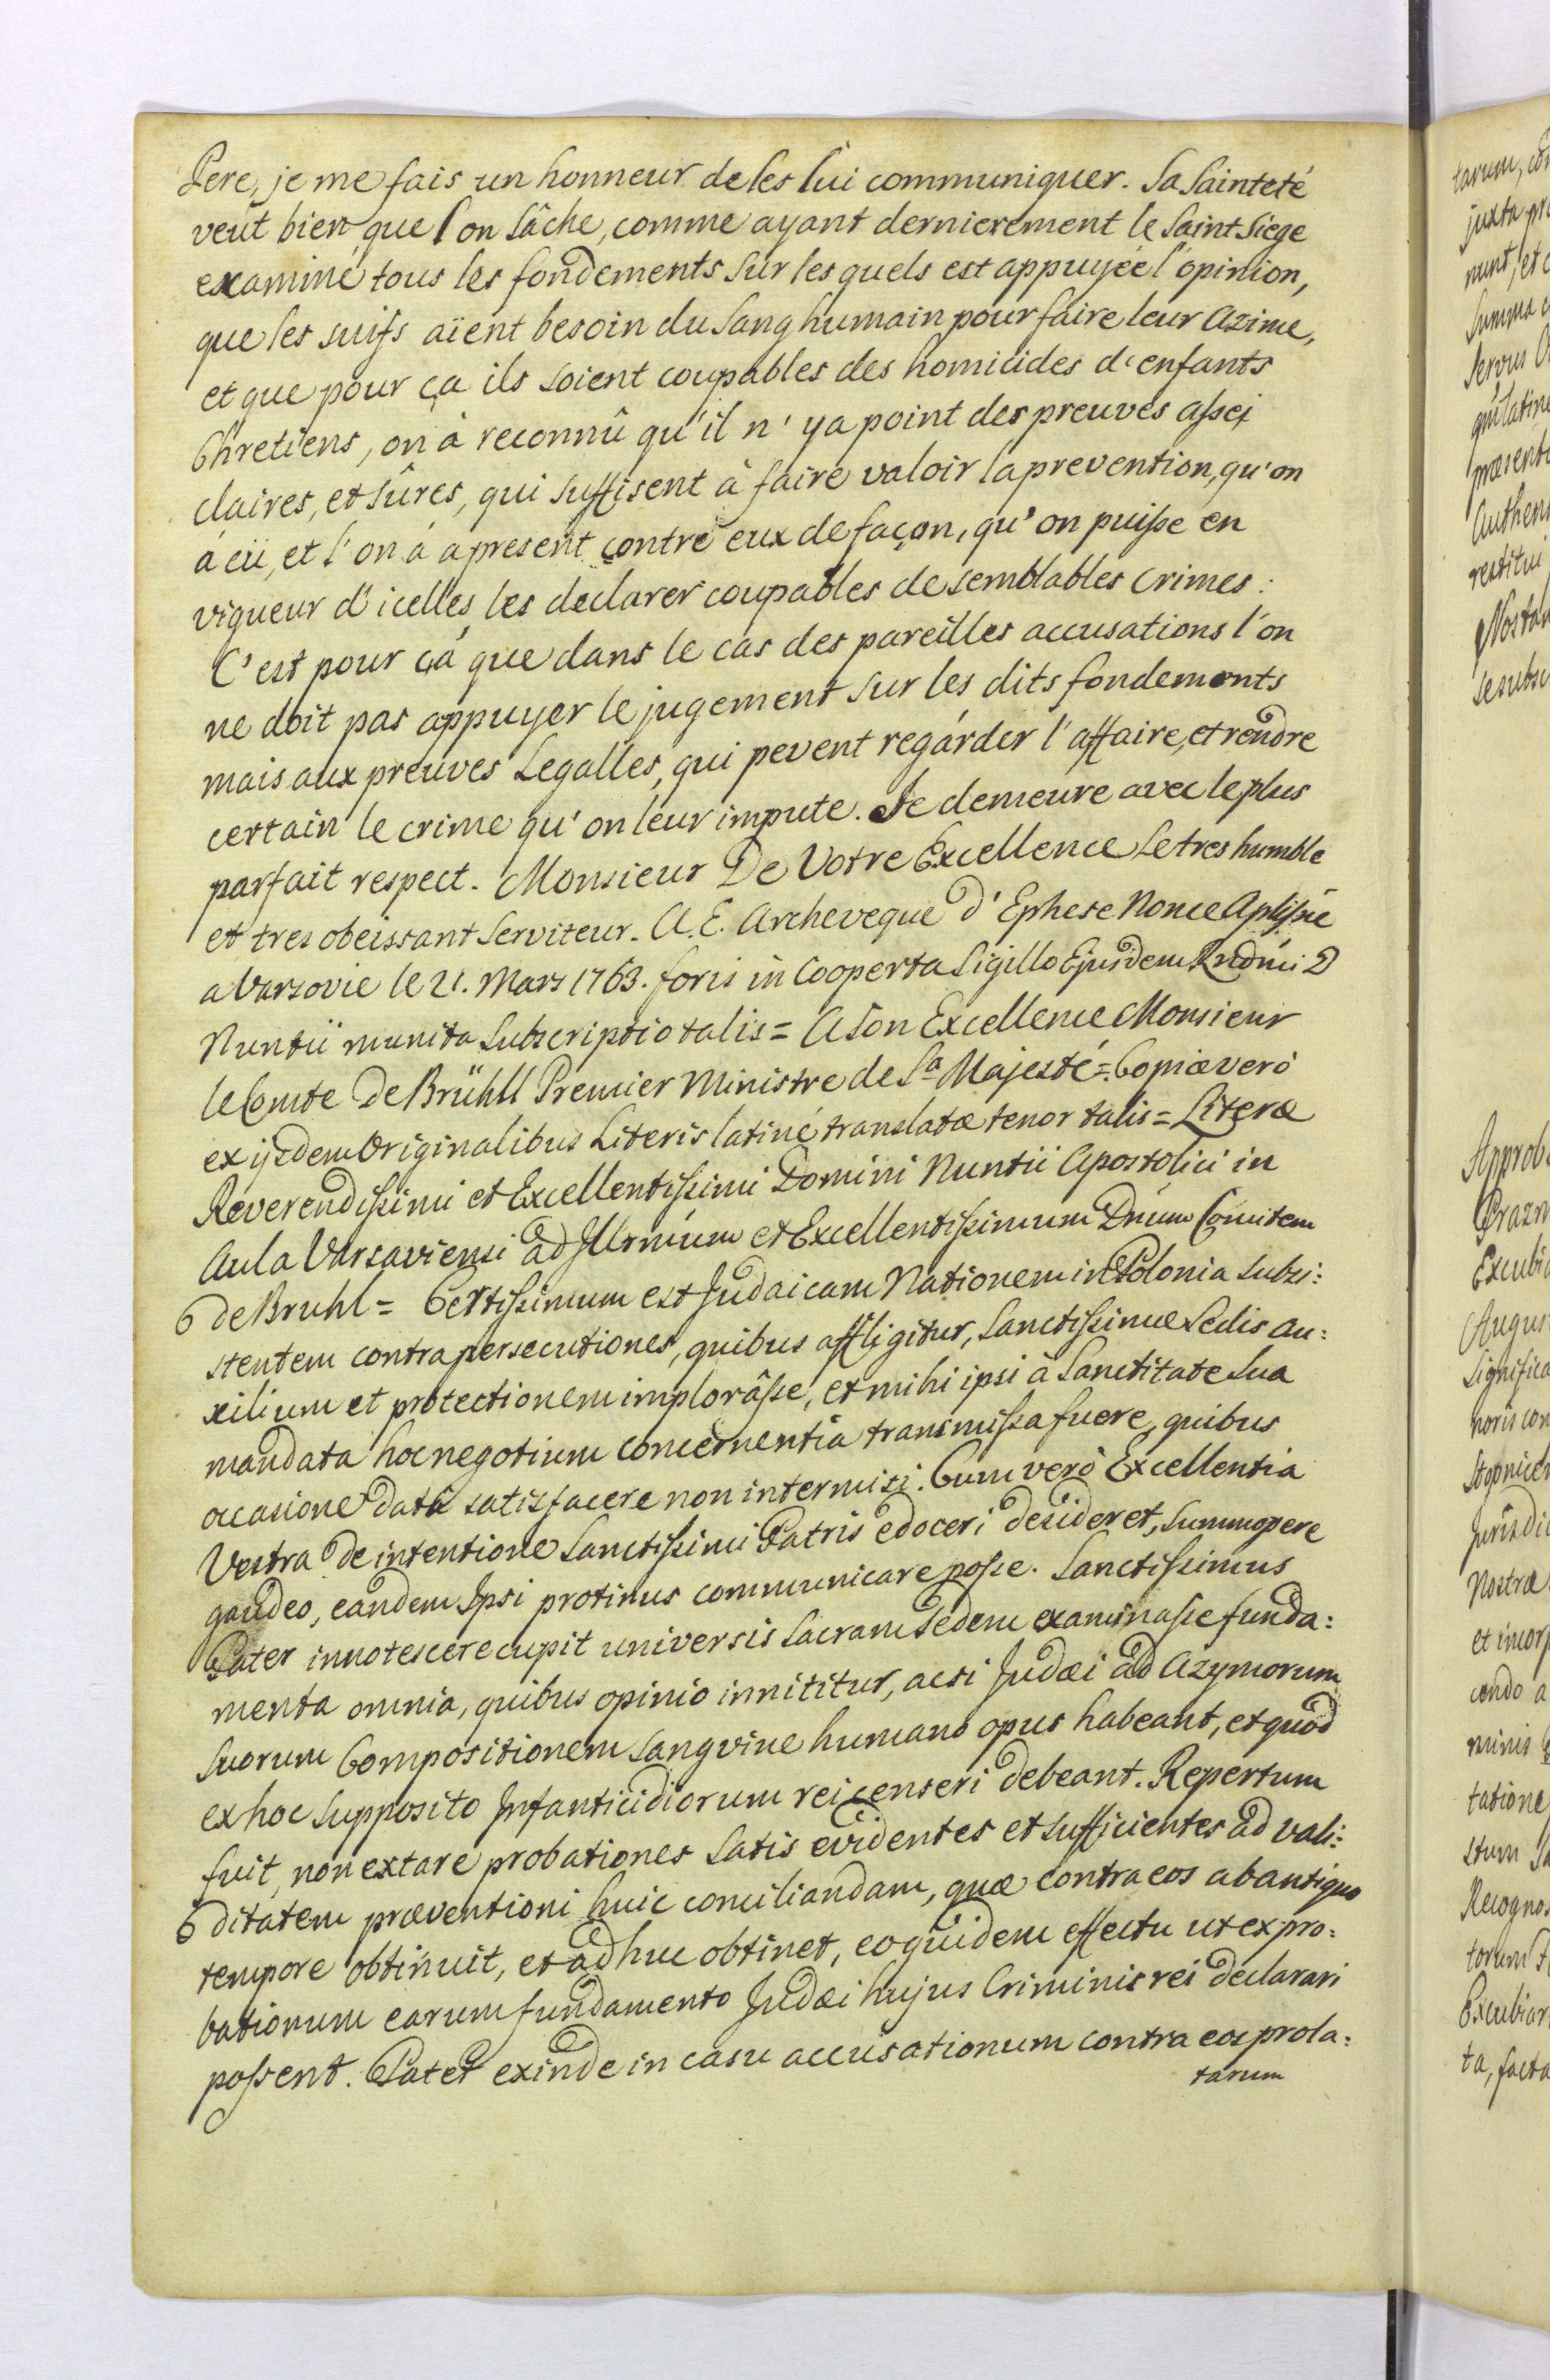 Pere, je me fais un honneur de les lui communiquer. Sa Sainteté
veut bien que l'on sâche, comme ayant dernierement le Saint Siege
examiné tous les fondements sur les quels est appuyée l'opinion,
que les suifs aïent besoin du Sang humain pour faire leur Azime,
et que pour ça ils soient coupables des homicides d'enfants
Chretiens, on à reconnû qu'il n'ya point des preuves assez
claires, et sûres, qui suffisent à faire valoir la prevention, qu'on
à eü, et l'on à apresent contre eux de façon, qu'on puisse en
vigueur d'icelles les declarer coupables de semblables Crimes:
C'est pour çà que dans le cas des pareilles accusations l'on
ne doit pas appuyer le jugement sur les dits fondements
mais aux preuves Legalles, qui pevent regárder l'affaire, et rendre
certain le crime qu'on leur impute. Je demeure avec le plus
parfait respect. Monsieur De Votre Excellence Le tres humble
et tres obeissant Serviteur. A. E. Archeveque d'Ephese Nonce
a Varsovie le 21. Mars 1763. foris in Cooperta Sigillo Ejusdem Rndmi D
Nuntii munita Subscriptio talis = A Son Excellence Monsieur
le Comte De Brühll Premier Ministre de Sa Majesté = Copiæ verò
ex ijsdem Originalibus Literis latiné translatæ tenor talis = Literæ
Reverendissimi et Excellentissimi Domini Nuntii Apostolici in
Aula Varsaviensi ad Illrmum et Excellentissimum Dnum Comitem
de Bruhl = Certissimum est Judaicam Nationem in Polonia subsi:
stentem contra persecutiones, quibus affligitur, Sanctissimæ Sedis au:
xilium et protectionem implorâsse, et mihi ipsi à Sanctitate Sua
mandata hoc negotium concernentia transmissa fuere, quibus
occasione data satisfacere non intermisi. Cum verò Excellentia
Vestra de intentione Sanctissimi Patris edoceri desideret, summopere
gaudeo, eandem Ipsi protinus communicare posse. Sanctissimus
Pater innotescere cupit universis Sacram Sedem examinasse funda:
menta omnia, quibus opinio innititur, acsi Judæi ad Azymorum
suorum Compositionem sangvine humano opus habeant, et quòd
ex hoc supposito Infanticidiorum rei censeri debeant. Repertum
fuit, non extare probationes satis evidentes et sufficientes ad vali:
ditatem præventioni huic conciliandam, quæ contra eos ab antiquo
tempore obtinuit, et adhuc obtinet, eo quidem effectu ut ex pro:
bationum earum fundamento Judæi hujus Criminis rei declarari
possent. Patet exinde in casu accusationum contra eos prola:
tarum